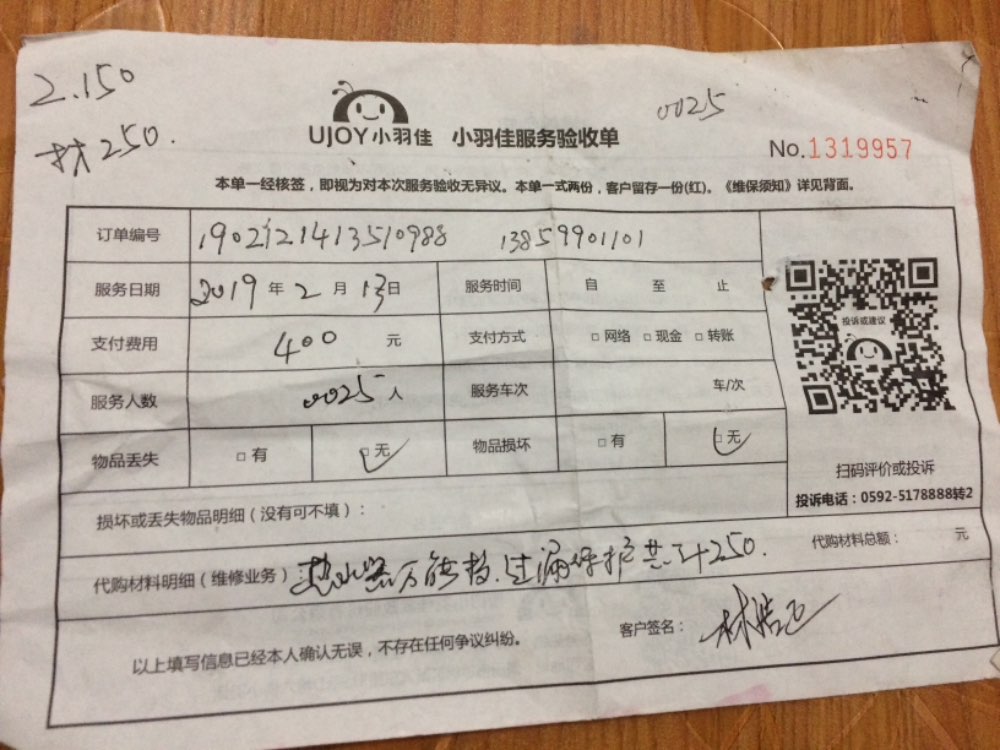 2.150
材250.
0025
UJOY小羽佳 小羽佳服务验收单
No.1319957
本单一经核签，即视为对本次服务验收无异议。本单一式两份，客户留存一份(红)。《维保须知》详见背面。
订单编号 1902121413510988 13859901101
服务日期 2019年2月13日 服务时间 自 至 止
支付费用 400 元 支付方式 □网络 □现金 □转账
服务人数 0025人 服务车次 车/次
物品丢失 □有 □无 物品损坏 □有 □无
投诉或建议
扫码评价或投诉
投诉电话：0592-5178888转2
损坏或丢失物品明细（没有可不填）：
代购材料明细（维修业务）：热水器万能档.过漏保护共计250.
代购材料总额： 元
以上填写信息已经本人确认无误，不存在任何争议纠纷。
客户签名：林浩